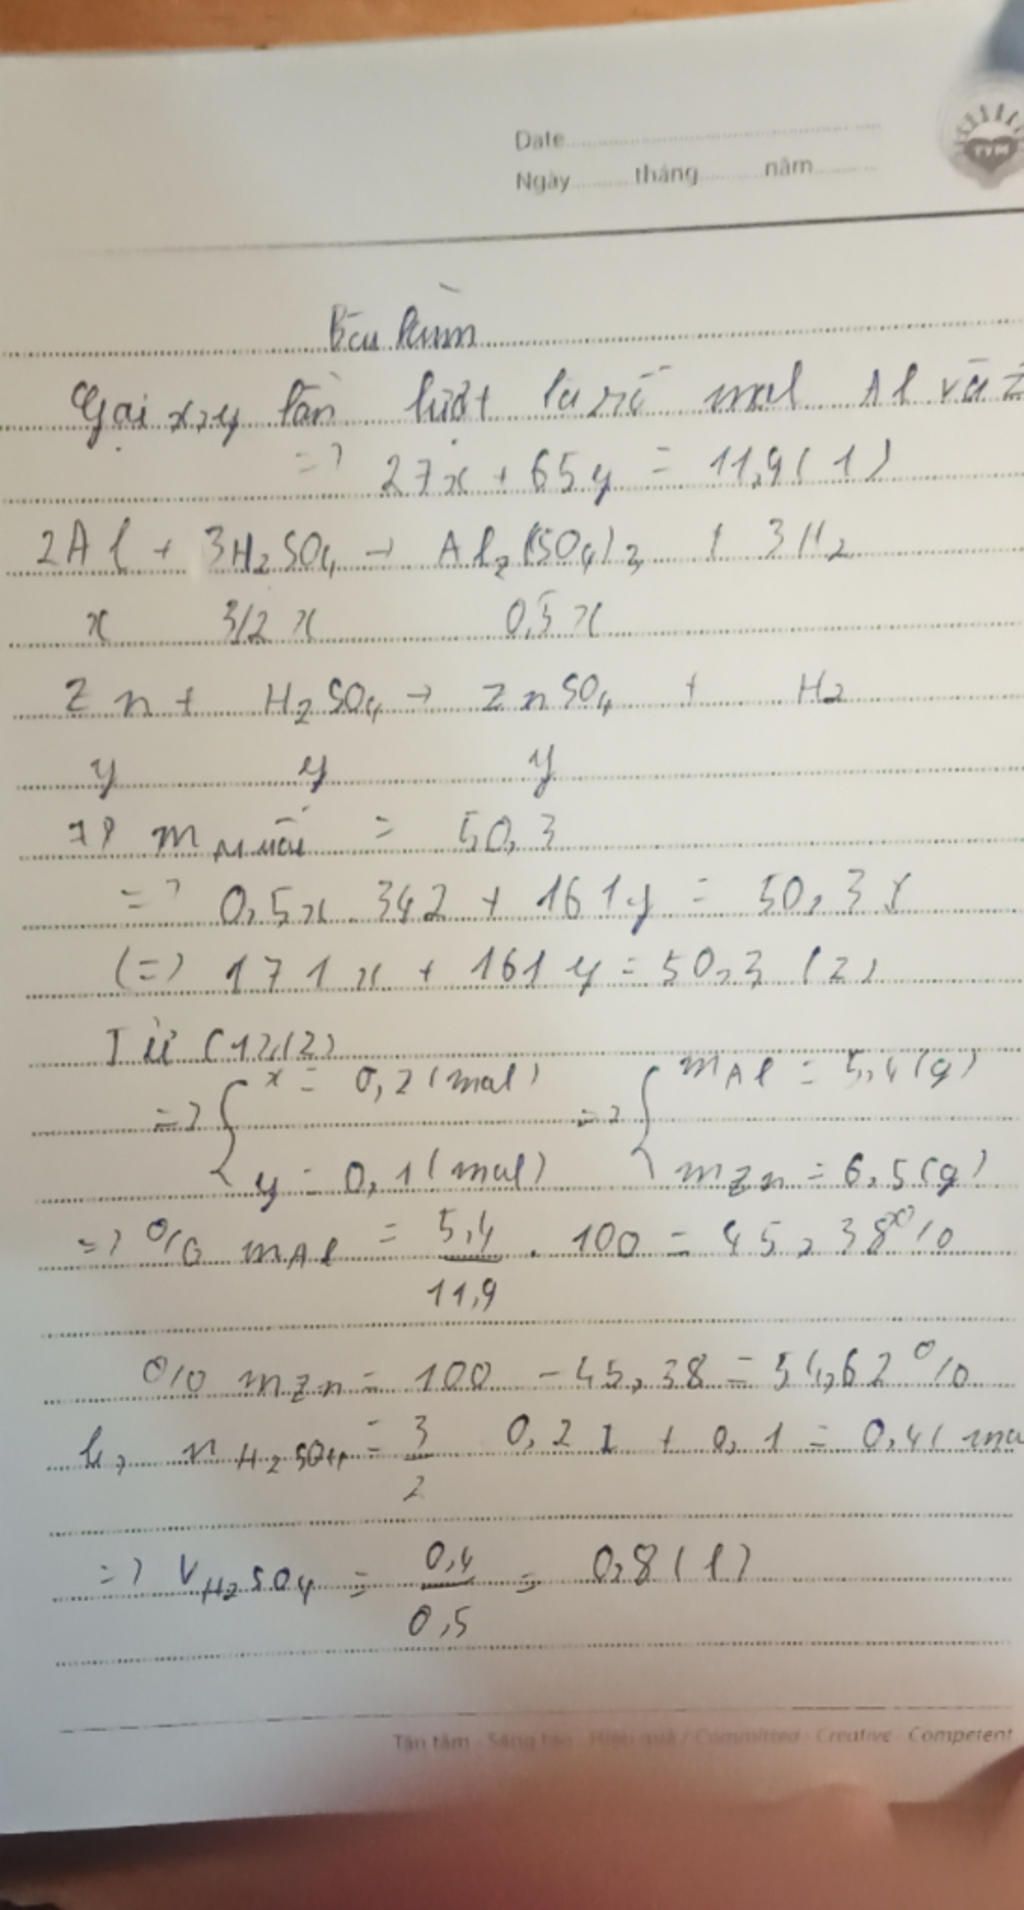 Date
Ngày tháng năm
TYM
Bài làm
Gọi x, y lần lượt là số mol Al và Z
=> 27x + 65y = 11,9 (1)
2Al + 3H₂SO₄ → Al₂(SO₄)₃ + 3H₂
x 3/2 x 0,5x
Zn + H₂SO₄ → ZnSO₄ + H₂
y y y
=> m muối = 50,3
=> 0,5x.342 + 161y = 50,3
(=) 171x + 161y = 50,3 (2)
Từ (1),(2)
=> { x = 0,2 (mol) => { mAl = 5,4 (g)
y = 0,1 (mol) mZn = 6,5 (g)
=> % mAl = 5,4/11,9 . 100 = 45,38%
% mZn = 100 - 45,38 = 54,62%
b, nH₂SO₄ = 3/2 0,2 + 0,1 = 0,4 (mo
=> VH₂SO₄ = 0,4/0,5 = 0,8 (l)
Tận tâm - Sáng tạo - Hiệu quả / Committed - Creative - Competent